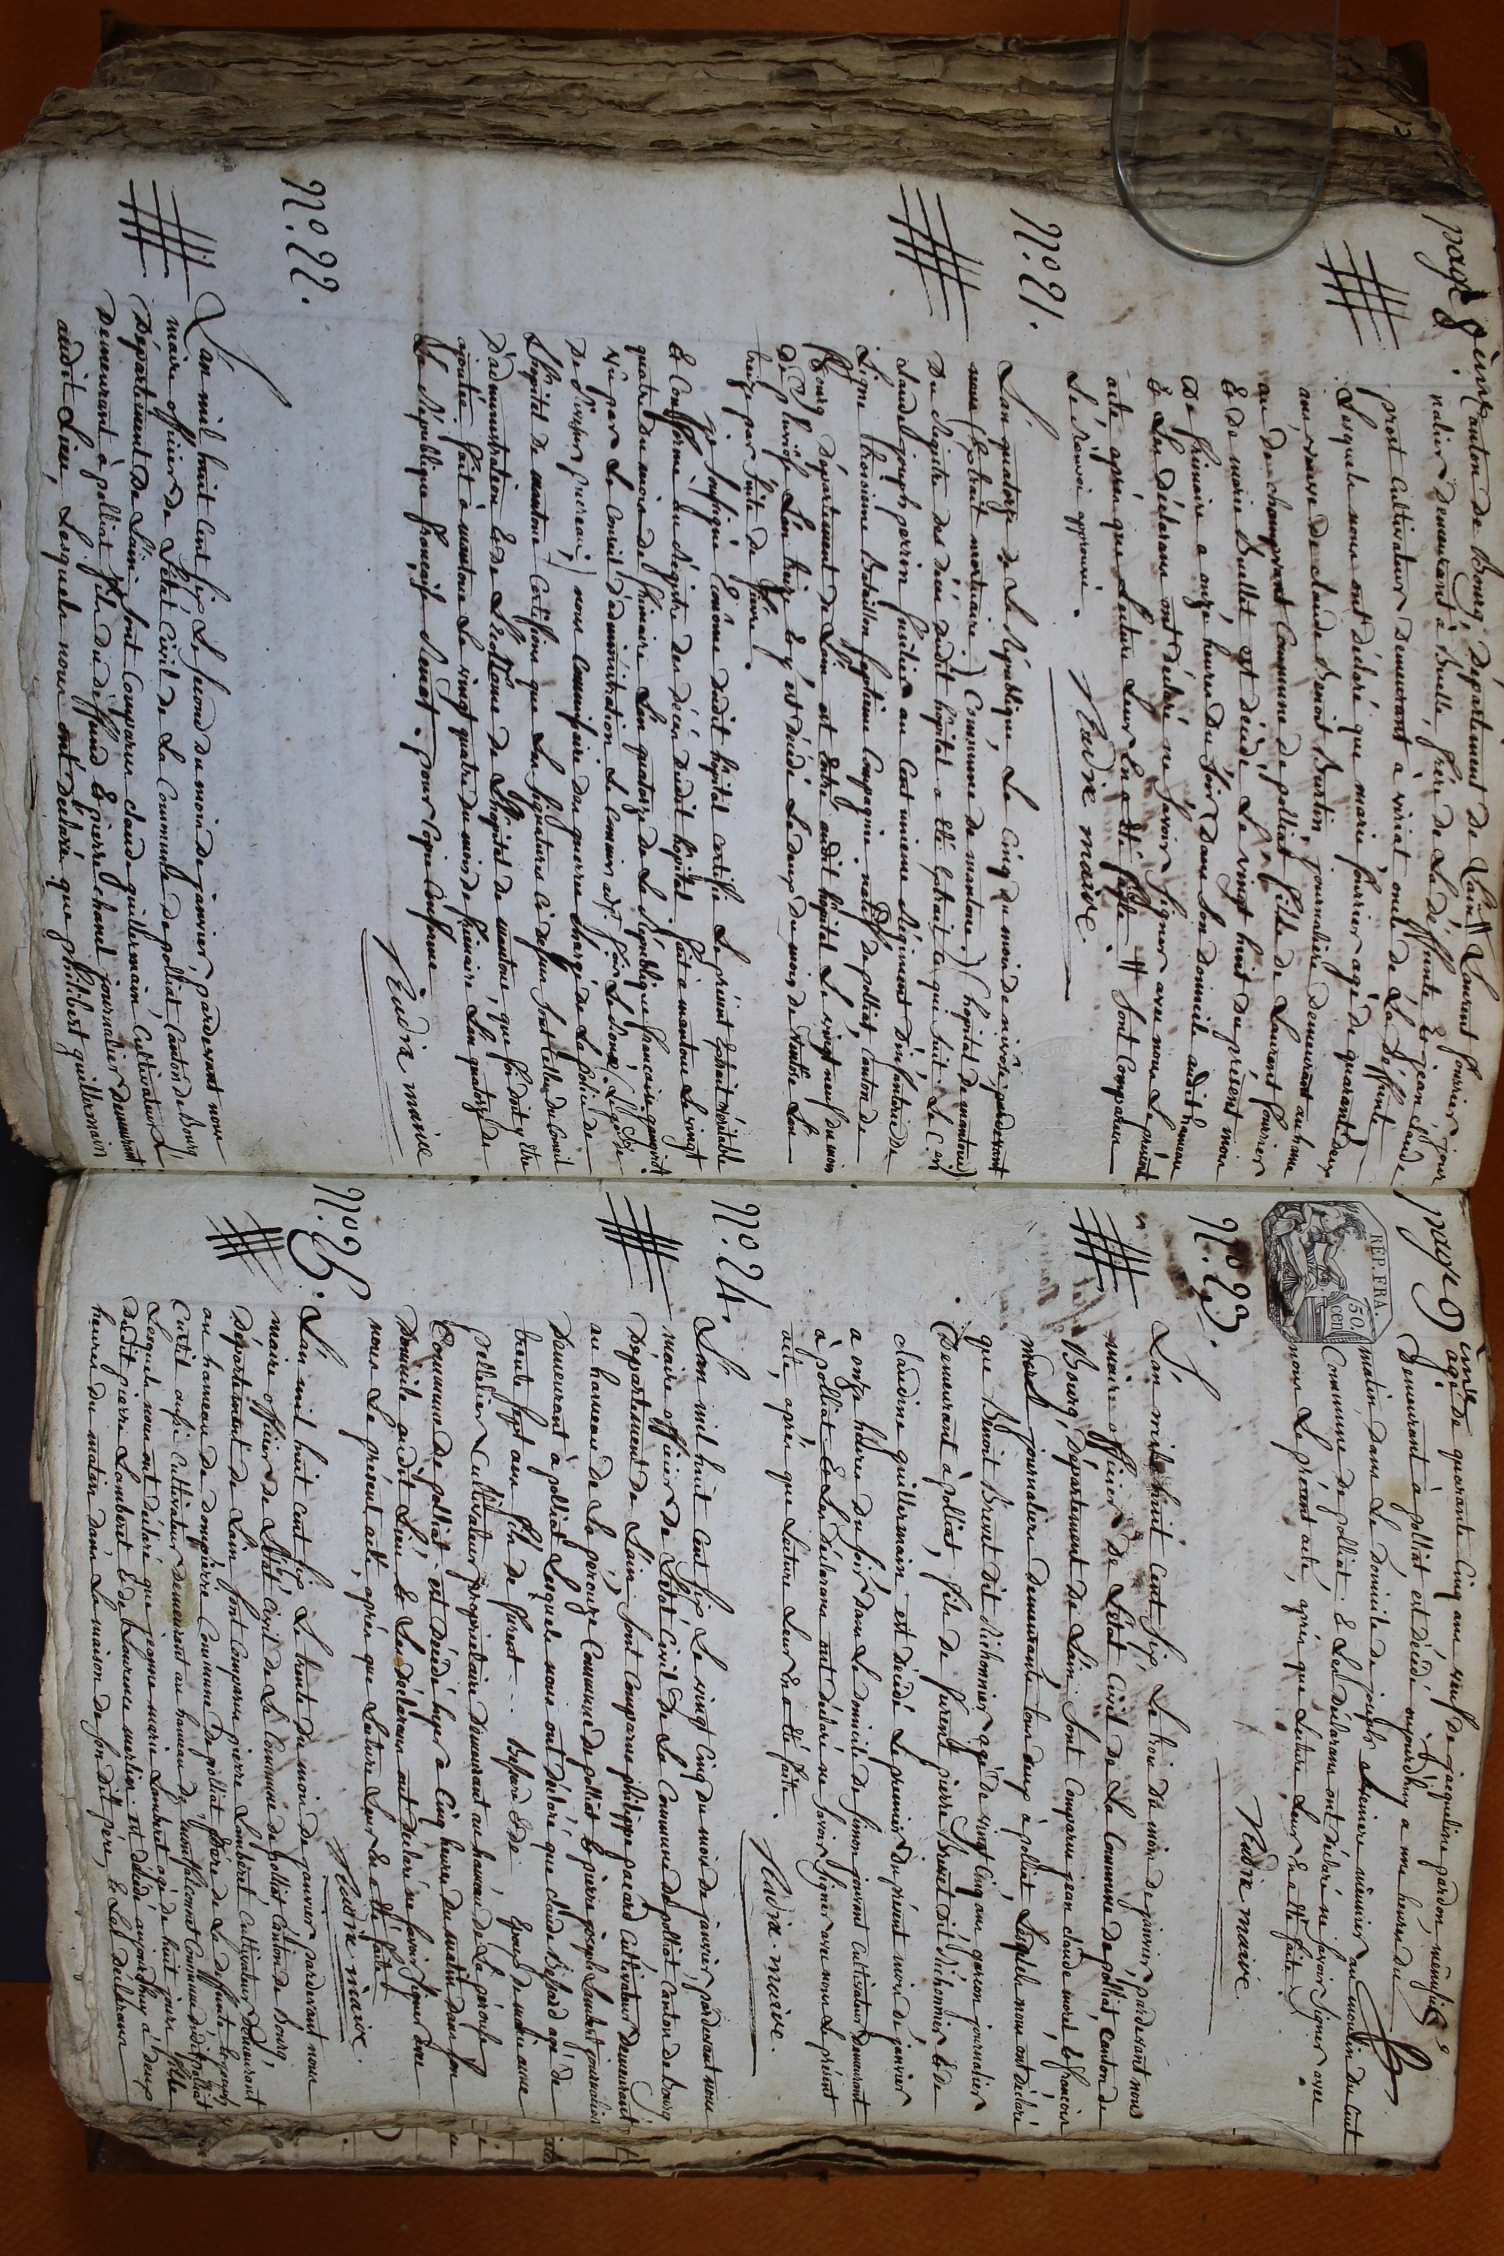 page 8ème
canton de Bourg, Département de L'ain # Laurent fourrier, jour
nalier Demeurant à Buelle, frère de La déffunte & jean Claude
prost Cultivateur Demeurant à viriat oncle de La déffunte
Lesquels nous ont déclaré que marie fourrier agé de quarante deux
ans, veuve de claude Benoit Burtin, journaliere demeurant au hame
au de champvent Commune de polliat, fille de Laurent fourier
& de marie Buellet est décédé Le vingt huit du présent mois
De frimaire a onze heures Du soir Dans son Domicile audit hameau
& Les Déclarans ont déclaré ne savoir signer avec nous Le présent
acte après que Lecture Leur En a été faite # sont comparus
Le renvoi approuvé.
Nadix maire.
N.º 21.
L'an quatorze de La République, Le Cinq du mois de nivose, pardevant
nous (Extrait mortuaire.) Commune de mantoue.) (hopital de mantoue)
Du Registre des décès dudit hopital a été Extrait ce qui suit. Le C.en
claude joseph perrin fusilier au Cent unieme Régiment D'infanterie De
Ligne troisieme Bataillon septieme Compagnie. natif de polliat Canton de
Bourg Département de L'ain est Entré audit hopital Le vingt neuf du mois
De pluviose L'an treize & y est décédé Le deux du mois de Ventose L'an
treize par suite de fievre.
je soussigné Econome dudit hopital certifie Le présent Extrait véritable
& Conforme au Registre des décès dudit hopital fait a mantoue Le vingt
quatre du mois de frimaire L'an quatorze de La République française
Vu par Le Conseil d'administration Le Commissaire
nous Commissaire des guerres chargé de La police de
L'hopital de mantoue Certifions que Les signatures ci dessus sont celles du Conseil
D'administration & de L'econome de L'hopital de mantoue, que foi doit y être
ajoutée. fait à mantoue Le vingt quatre du mois de frimaire L'an quatorze de
La République française pour Copie Conforme
Nadix maire
N.º 22.
L'an mil huit cent six Le second du mois de janvier, pardevant nous
maire officier de L'état Civil de La Commune de polliat, Canton de Bourg
Département de L'ain, sont Comparus claude guillermain, Cultivateur
Demeurant à polliat fils du deffunt & pierre chanel journalier Demeurant
audit Lieu, Lesquels nous ont déclaré que philibert guillermain
page 9ème
REP. FRA.
50 cen
agé de quarante Cinq ans, veuf de jacqueline pardon, menusier
Demeurant à polliat est décédé aujourd'huy a une heure du
matin, Dans Le Domicile de joseph meunier au moulin du Curt
Commune de polliat. & Les déclarans ont déclaré ne savoir signer avec
nous Le présent acte, après que Lecture Leur En a été faite.
Nadix maire
N.º 23.
L'an mil huit Cent six, Le trois du mois de janvier, pardevant nous
maire officier de L'état Civil de La Commune de polliat, Canton de
Bourg, Département de L'ain, sont Comparus jean claude morel, & françois
morel journaliers demeurants tous deux à polliat, Lesquels nous ont déclaré
que Benoit Brevet dit dichonnier agé de vingt cinq ans garçon journalier
Demeurant à polliat, fils de furent pierre Brevet dit dichonnier & de
claudine guillermain est décédé Le premier du présent mois de janvier
a onze heures du soir, Dans Le Domicile de simon jouvent cultivateur demeurant
à polliat & Les Déclarans ont déclaré ne savoir signer avec nous Le présent
acte, après que Lecture Leur En a été faite.
Nadix maire.
N.º 24.
L'an mil huit Cent six Le vingt cinq du mois de janvier, pardevant nous
maire officier de L'état Civil de La Commune de polliat Canton de Bourg
Département de L'ain, sont Comparus philippe pacard Cultivateur Demeurant
au hameau de La perouze Commune de polliat & pierre joseph Lambert journalier
Demeurant à polliat Lesquels nous ont déclaré que claude Buffard agé de
trente sept ans fils de furent ... Buffard & de epoux de marie anne
pelletier Cultivateur propriétaire demeurant au hameau de La perouse
Commune de polliat est décédé hyer a Cinq heures du matin dans son
Domicile audit Lieu & Les déclarans ont déclaré ne savoir signer avec
nous Le présent acte, après que Lecture Leur En a été faite
Nadix maire.
N.º 25.
L'an mil huit cent six Le trente du mois de janvier pardevant nous
maire officier de L'état Civil de La Commune de polliat Canton de Bourg,
Département de L'ain, sont Comparus pierre Lambert Cultivateur Demeurant
au hameau de dompierre Commune de polliat père de La deffunte & joseph
Curtil aussi Cultivateur Demeurant au hameau de montfalconet Commune dudit polliat
Lesquels nous ont déclaré que jeanne marie Lambert agé de huit jours fille
Dudit pierre Lambert & de Laurence merlin est décédé aujourd'huy à deux
heures du matin dans La maison de son dit père, & Les Déclarans